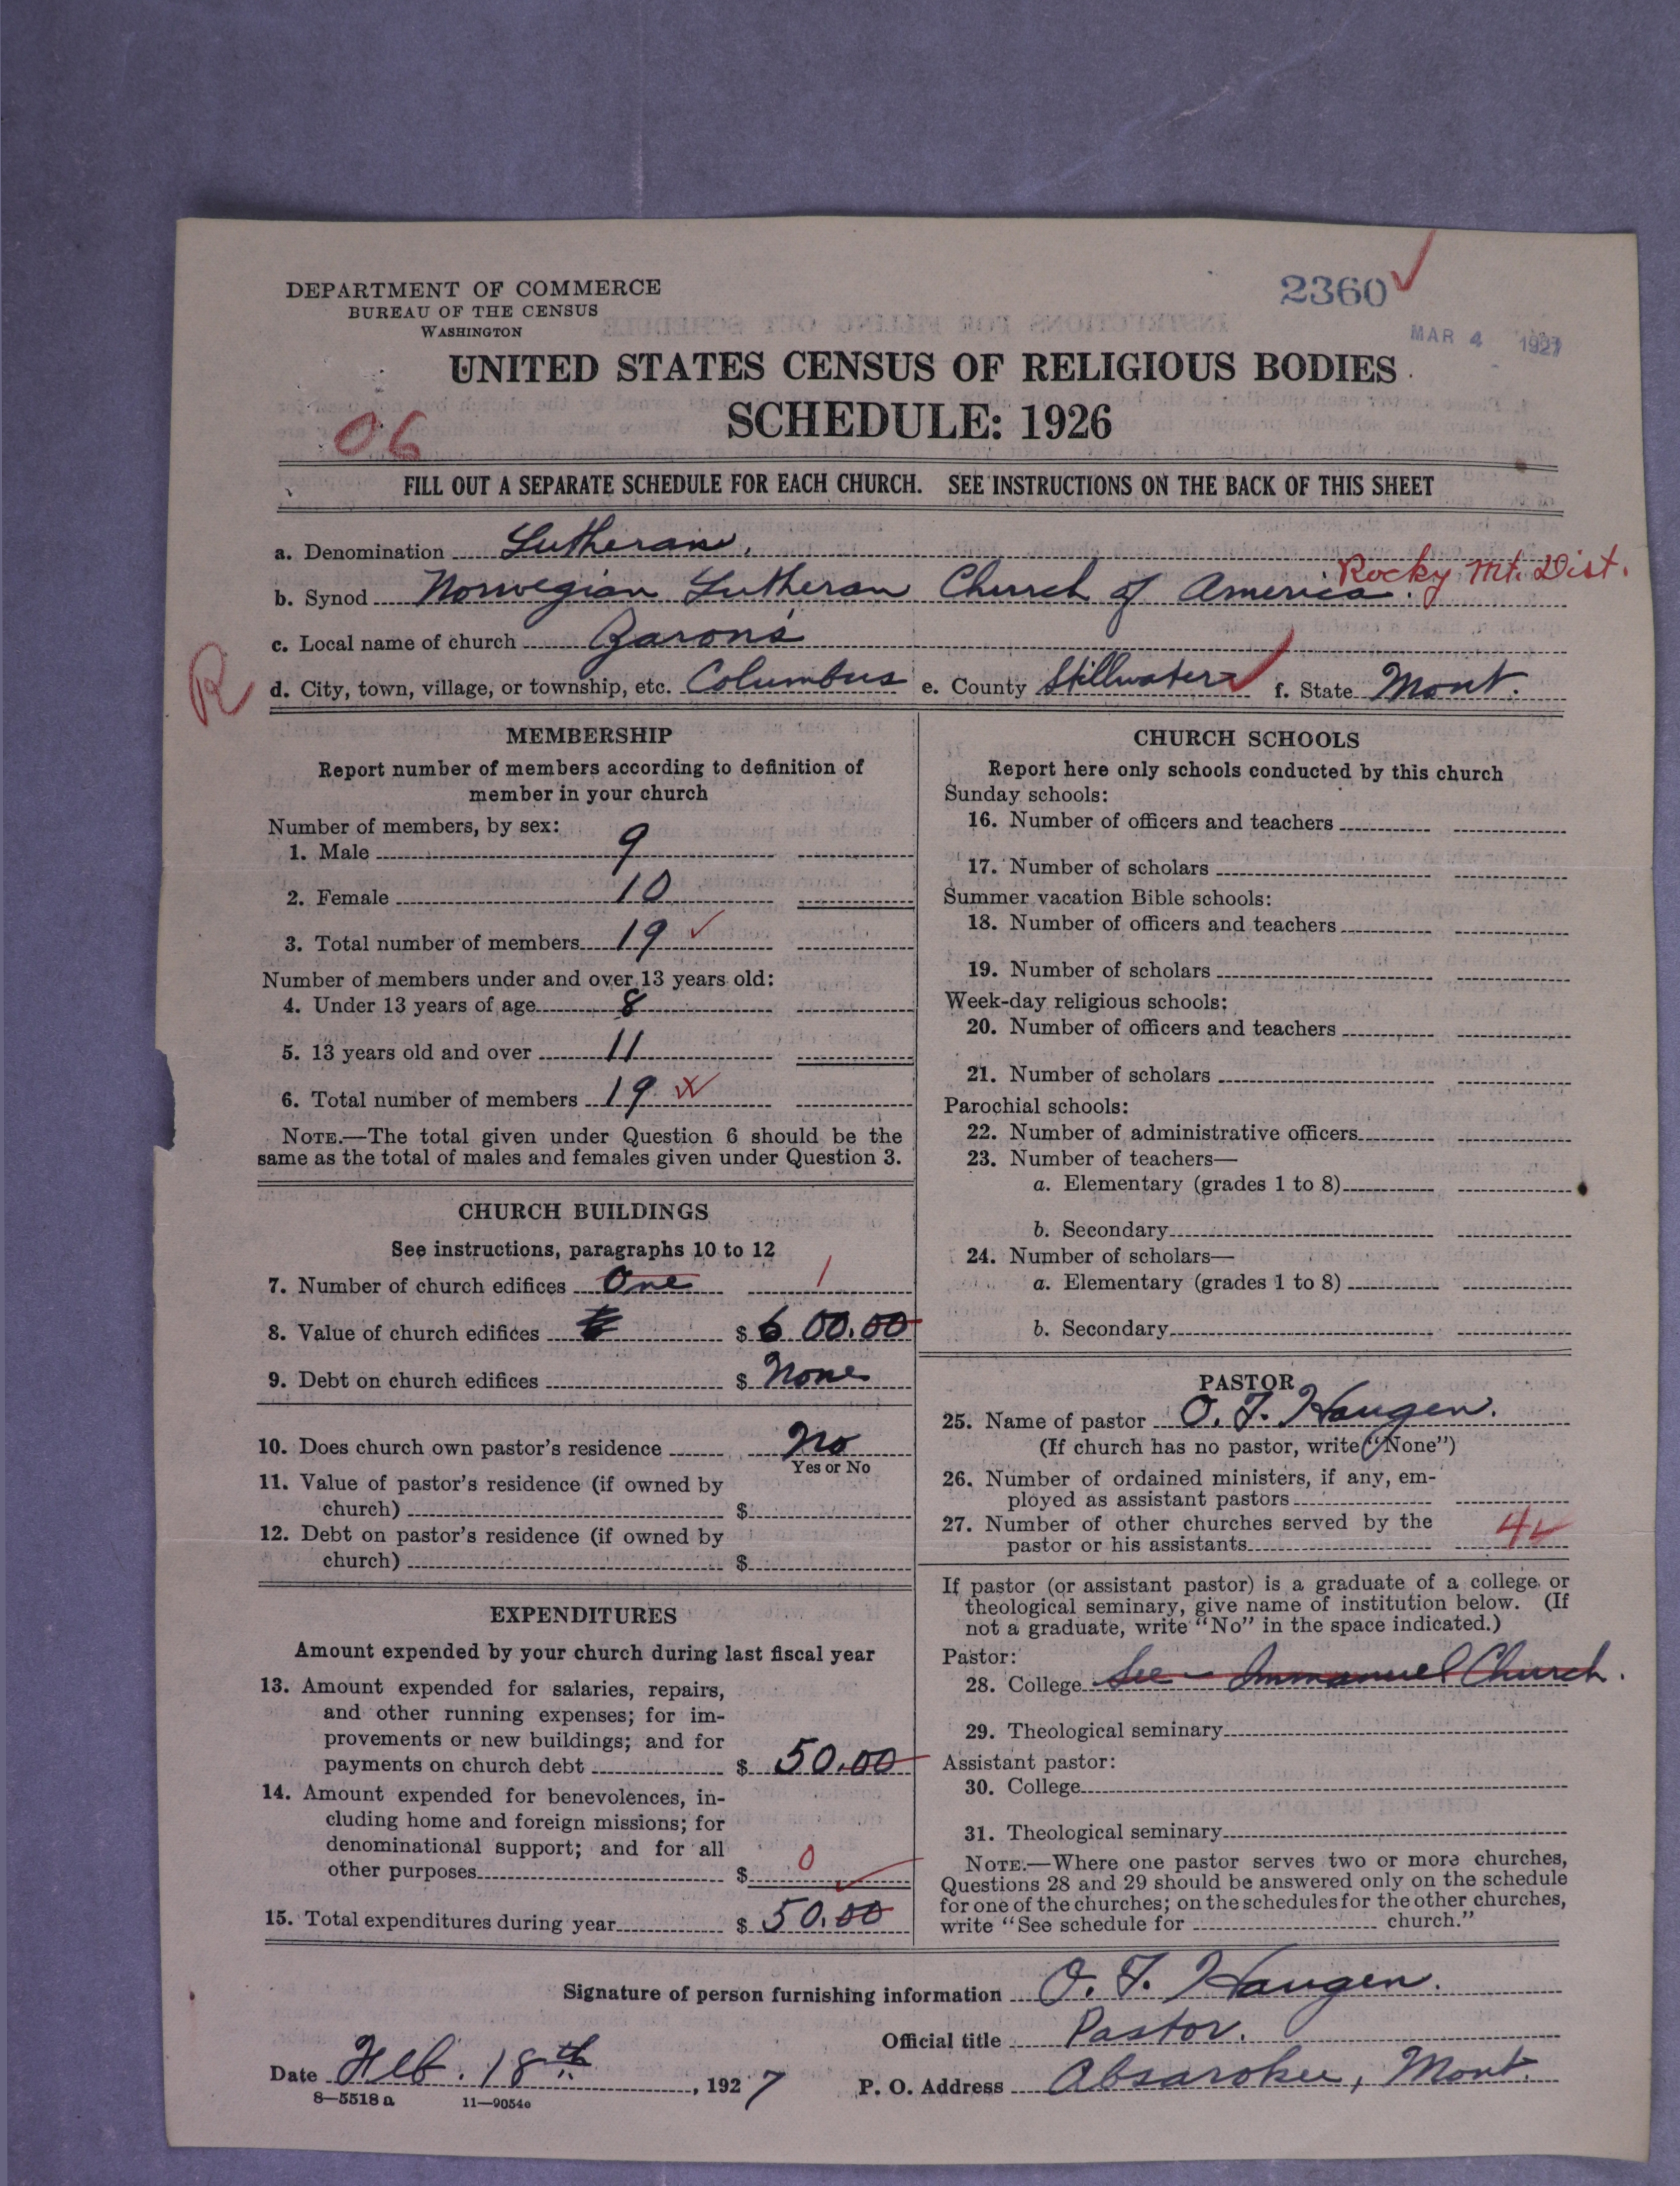 DEPARTMENT OF COMMERCE
BUREAU OF THE CENSUS
WASHINGTON
2360
MAR 4 1927
UNITED STATES CENSUS OF RELIGIOUS BODIES
SCHEDULE: 1926
06
FILL OUT A SEPARATE SCHEDULE FOR EACH CHURCH. SEE INSTRUCTIONS ON THE BACK OF THIS SHEET
a. Denomination Lutheran.
b. Synod Norwegian Lutheran Church of America. Rocky Mt. Dist.
c. Local name of church
R
d. City, town, village, or township, etc. Columbus e. County Stillwater f. State Mont.
MEMBERSHIP
Report number of members according to definition of
member in your church
Number of members, by sex:
1. Male 9
2. Female 10
3. Total number of members 19
Number of members under and over 13 years old:
4. Under 13 years of age 8
5. 13 years old and over 11
6. Total number of members 19
NOTE.—The total given under Question 6 should be the
same as the total of males and females given under Question 3.
CHURCH BUILDINGS
See instructions, paragraphs 10 to 12
7. Number of church edifices One 1
8. Value of church edifices $ 600.00
9. Debt on church edifices $ None
10. Does church own pastor's residence No
Yes or No
11. Value of pastor's residence (if owned by
church) $
12. Debt on pastor's residence (if owned by
church) $
EXPENDITURES
Amount expended by your church during last fiscal year
13. Amount expended for salaries, repairs,
and other running expenses; for im-
provements or new buildings; and for
payments on church debt $ 50.00
14. Amount expended for benevolences, in-
cluding home and foreign missions; for
denominational support; and for all
other purposes $ 0
15. Total expenditures during year $ 50.00
CHURCH SCHOOLS
Report here only schools conducted by this church
Sunday schools:
16. Number of officers and teachers
17. Number of scholars
Summer vacation Bible schools:
18. Number of officers and teachers
19. Number of scholars
Week-day religious schools:
20. Number of officers and teachers
21. Number of scholars
Parochial schools:
22. Number of administrative officers
23. Number of teachers—
a. Elementary (grades 1 to 8)
b. Secondary
24. Number of scholars—
a. Elementary (grades 1 to 8)
b. Secondary
PASTOR
25. Name of pastor O. T. Haugen.
(If church has no pastor, write "None")
26. Number of ordained ministers, if any, em-
ployed as assistant pastors
27. Number of other churches served by the
pastor or his assistants 4
If pastor (or assistant pastor) is a graduate of a college or
theological seminary, give name of institution below. (If
not a graduate, write "No" in the space indicated.)
Pastor:
28. College See - Immanuel Church.
29. Theological seminary
Assistant pastor:
30. College
31. Theological seminary
NOTE.—Where one pastor serves two or more churches,
Questions 28 and 29 should be answered only on the schedule
for one of the churches; on the schedules for the other churches,
write "See schedule for church."
Signature of person furnishing information O. T. Haugen.
Official title Pastor.
Date Feb. 18th, 1927 P. O. Address Absarokee, Mont.
8—5518 a 11—9054e